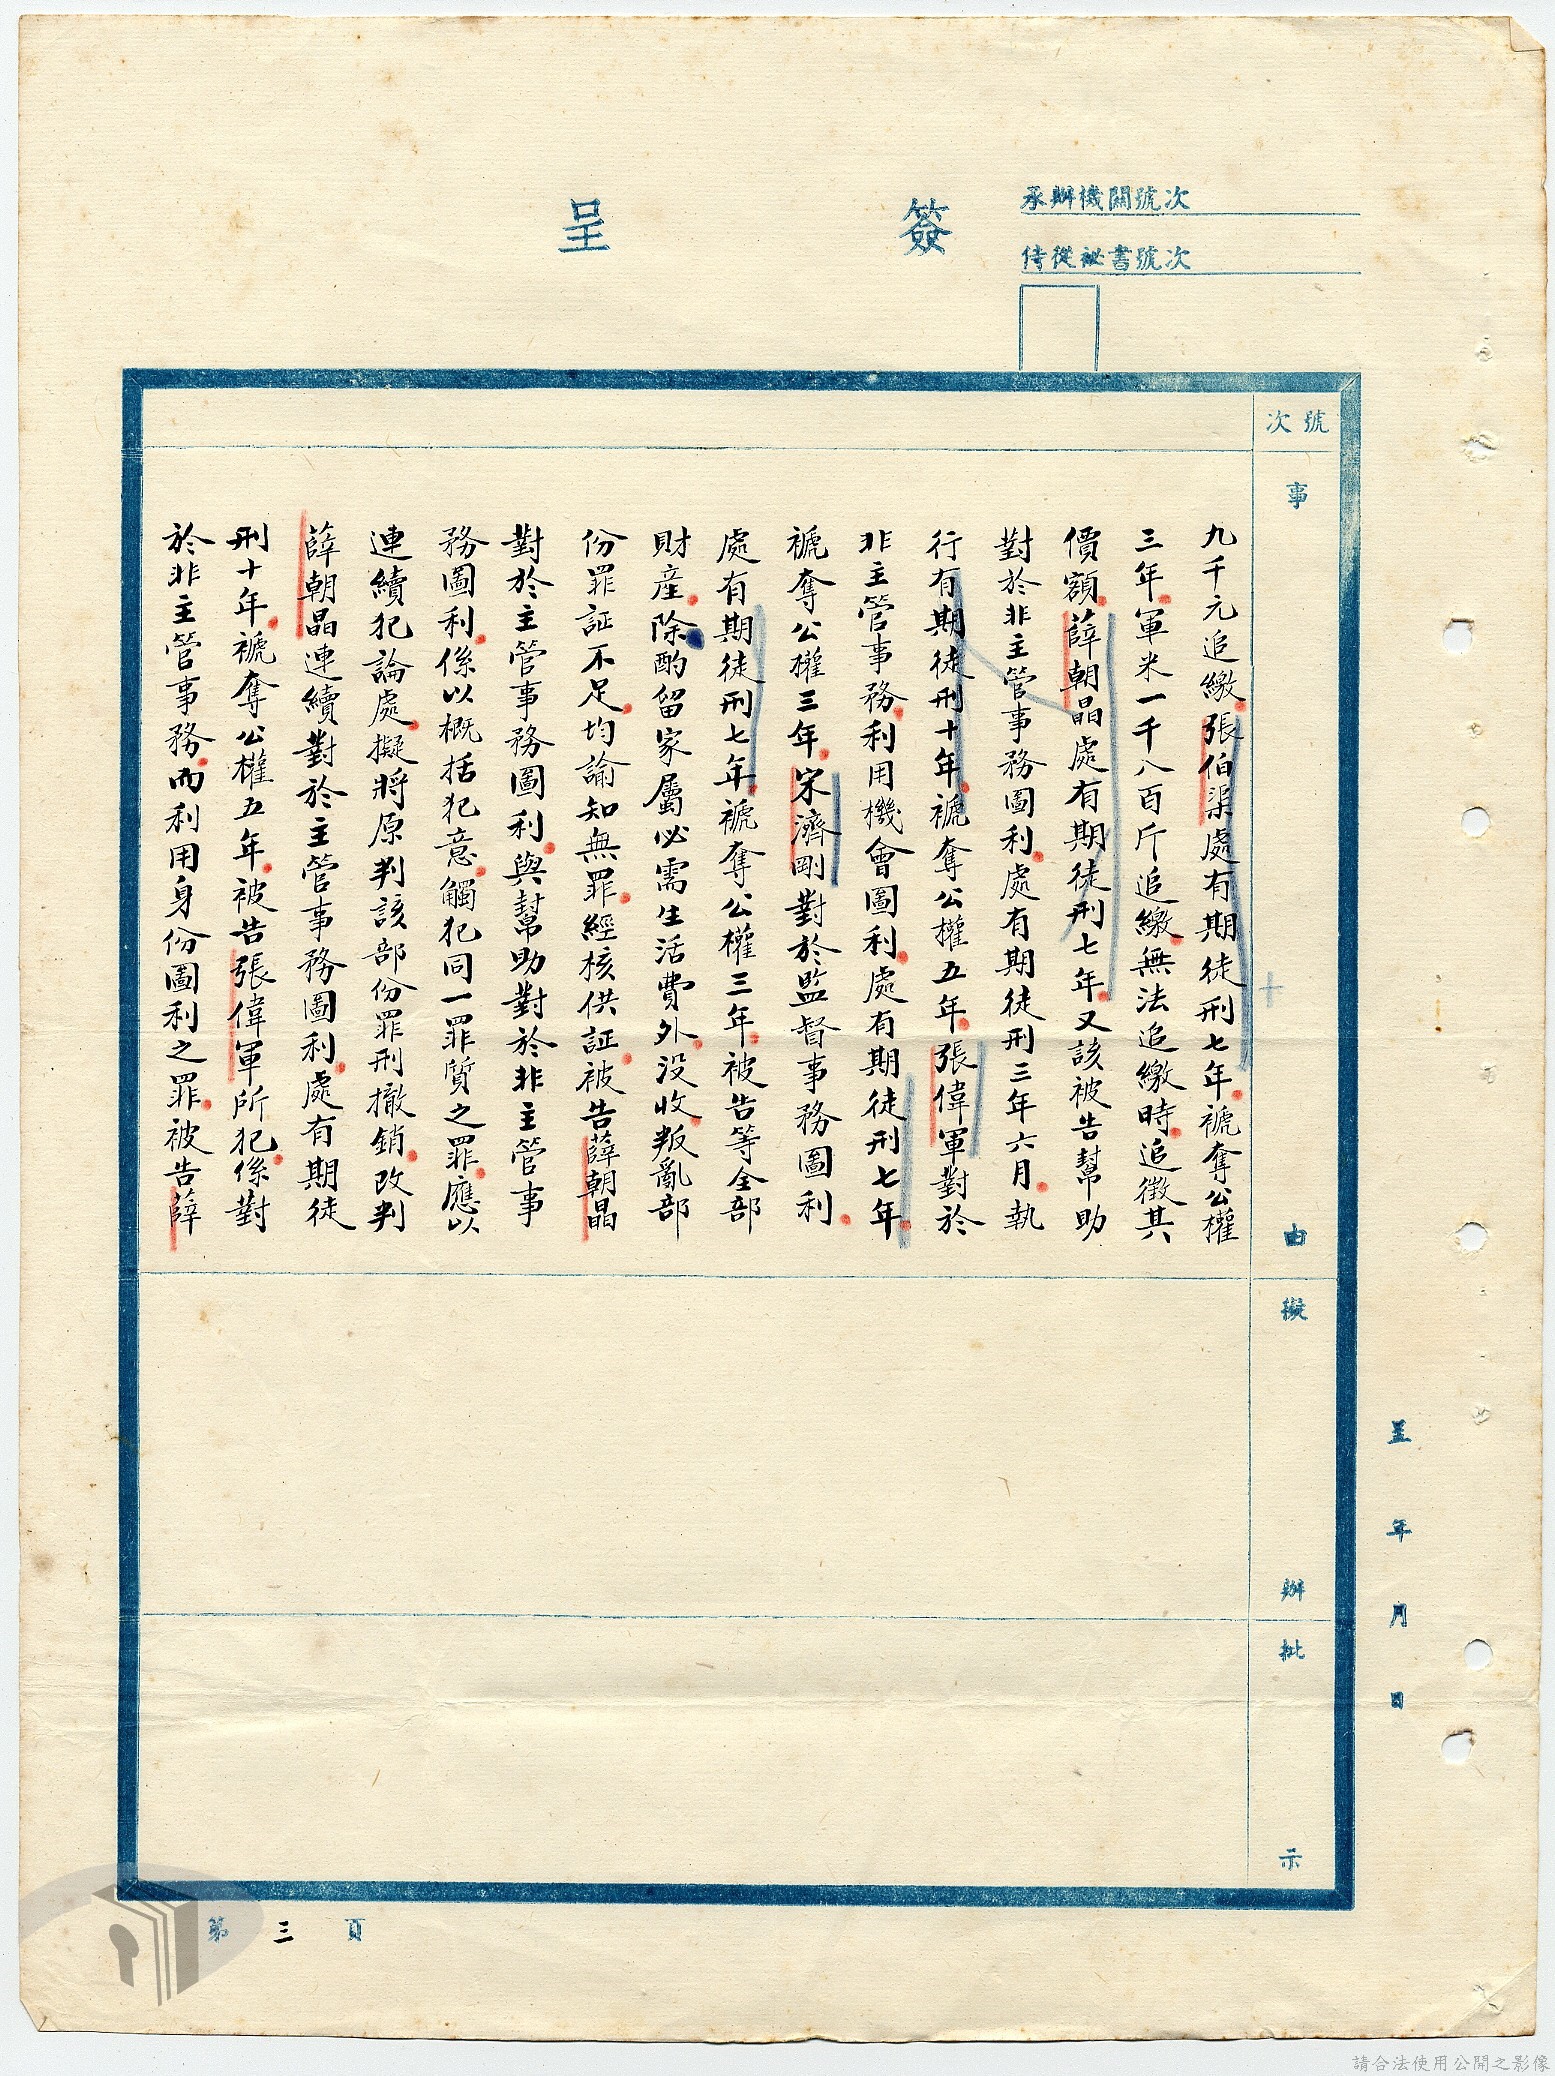 簽呈
承辦機關號次
侍從祕書號次
號次
事由
九千元追繳張伯渠處有期徒刑七年褫奪公權
三年軍米一千八百斤追繳無法追繳時追徵其
價額薛朝晶處有期徒刑七年又該被告幫助
對於非主管事務圖利處有期徒刑三年六月執
行有期徒刑十年褫奪公權五年張偉軍對於
非主管事務利用機會圖利處有期徒刑七年
褫奪公權三年宋濟剛對於監督事務圖利
處有期徒刑七年褫奪公權三年被告等全部
財產除酌留家屬必需生活費外沒收叛亂部
份罪証不足均諭知無罪經核供証被告薛朝晶
對於主管事務圖利與幫助對於非主管事
務圖利係以概括犯意觸犯同一罪質之罪應以
連續犯論處擬將原判該部份罪刑撤銷改判
薛朝晶連續對於主管事務圖利處有期徒
刑十年褫奪公權五年被告張偉軍所犯係對
於非主管事務而利用身份圖利之罪被告薛
擬辦
批示
呈 年 月 日
第三頁
請合法使用公開之影像